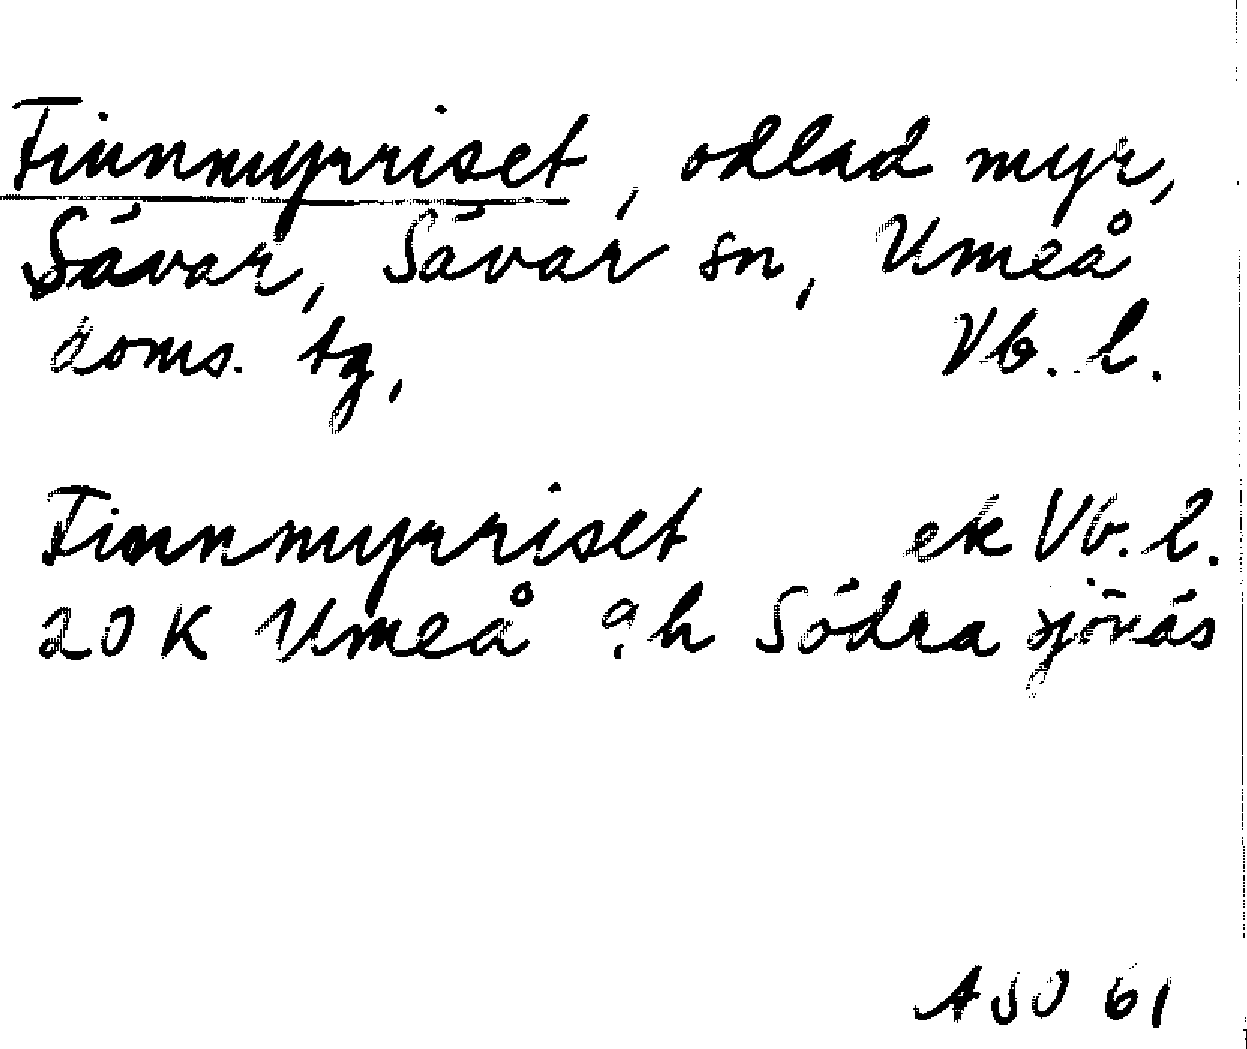 Finnmyrriset, odlad myr,
Sävar, Sävar sn, Umeå
doms. tg, Vb. l.
Finnmyrriset ek Vb. l.
20 K Umeå 9h Södra sjönäs
ASO 61